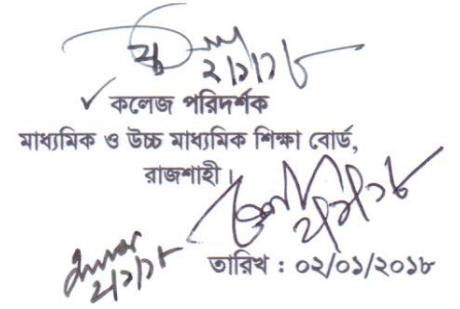 ২/১/১৮
কলেজ পরিদর্শক
মাধ্যমিক ও উচ্চ মাধ্যমিক শিক্ষা বোর্ড,
রাজশাহী।
২/১/১৮
২/১/১৮
তারিখ : ০২/০১/২০১৮